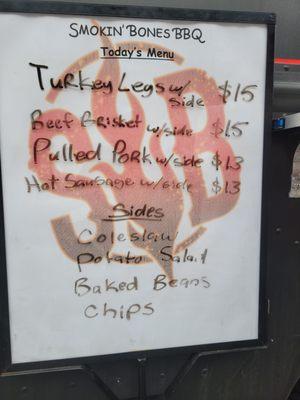 SMOKIN' BONES BBQ
Today's Menu
Turkey Legs w/ side $15
Beef Brisket w/side $15
Pulled Pork w/side $13
Hot Sausage w/side $13
Sides
Coleslaw
Potato Salad
Baked Beans
Chips